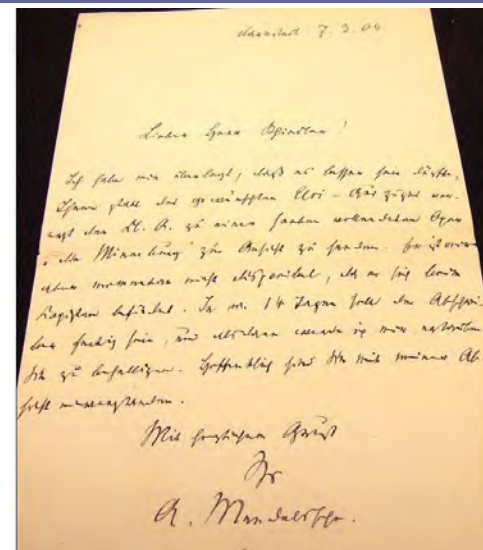 Darmstadt 7. 3. 09
Lieber Herr Schindler!
Ich habe mir überlegt, daß es besser sein dürfte,
Ihnen statt der gewünschten
den Kl. A. zu einer soeben vollendeten Oper
„ Minnekönig“ zur Ansicht zu senden. Er ist
aber momentan nicht disponibel, da er sich beim
Kopisten befindet. In ca. 14 Tagen soll die Abschrift
fertig sein, und alsdann werde ich mir
Sie zu behelligen. Hoffentlich sind Sie mit meiner Ab-
sicht einverstanden.
Mit herzlichem Gruß
Ihr
A. Mendelssohn.